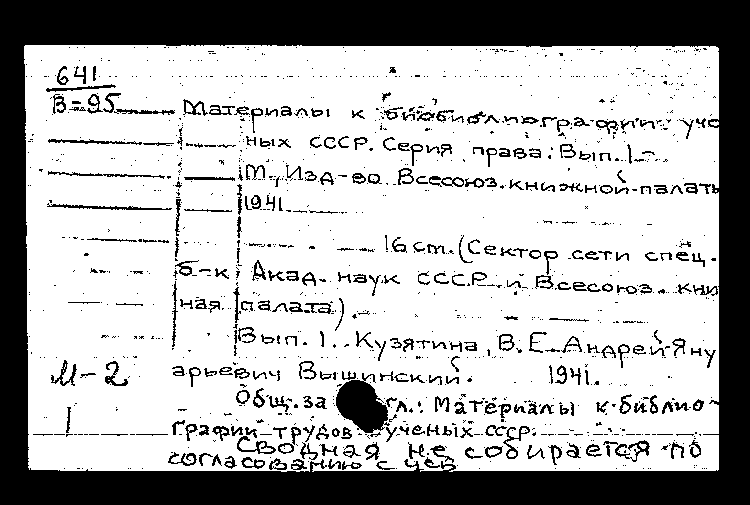 641
В-95
Материалы к биобиблиографии уче
ных СССР. Серия права. Вып. 1-
М., Изд-во Всесоюз. книжной палаты
1941
16 cm. (Сектор сети спец.
б-к Акад. наук СССР и Всесоюз. кни
ная палата).
Вып. 1. Кузятина, В. Е. Андрей Яну
арьевич Вышинский. 1941.
М-2
Общ. за гл.: Материалы к библио-
1
графии трудов ученых СССР.
Сводная не собирается по
согласованию с